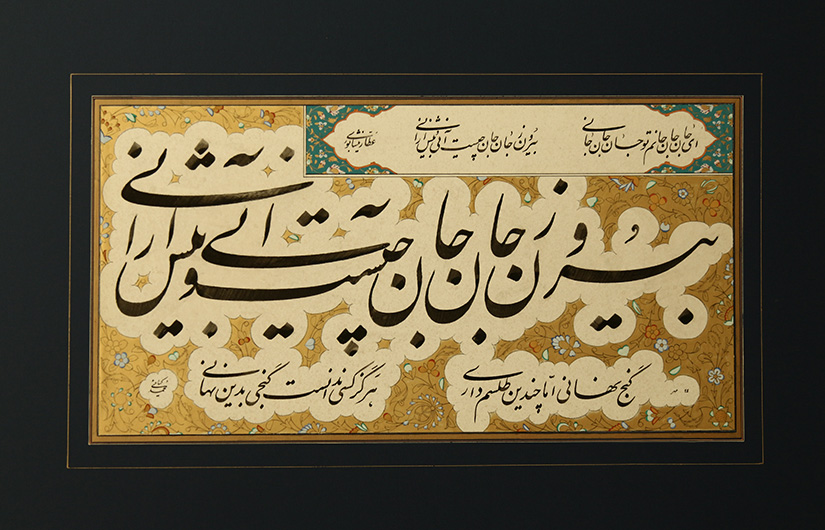 ای جان جان جانم تو جان جان جانی
بیرون ز جان جان چیست آنی و بیش از آنی
عطار نیشابوری
بیرون ز جان جان چیست آنی و بیش از آنی
گنج نهانی اما چندین طلسم داری
هرگز کسی ندانست گنجی بدین نهانی